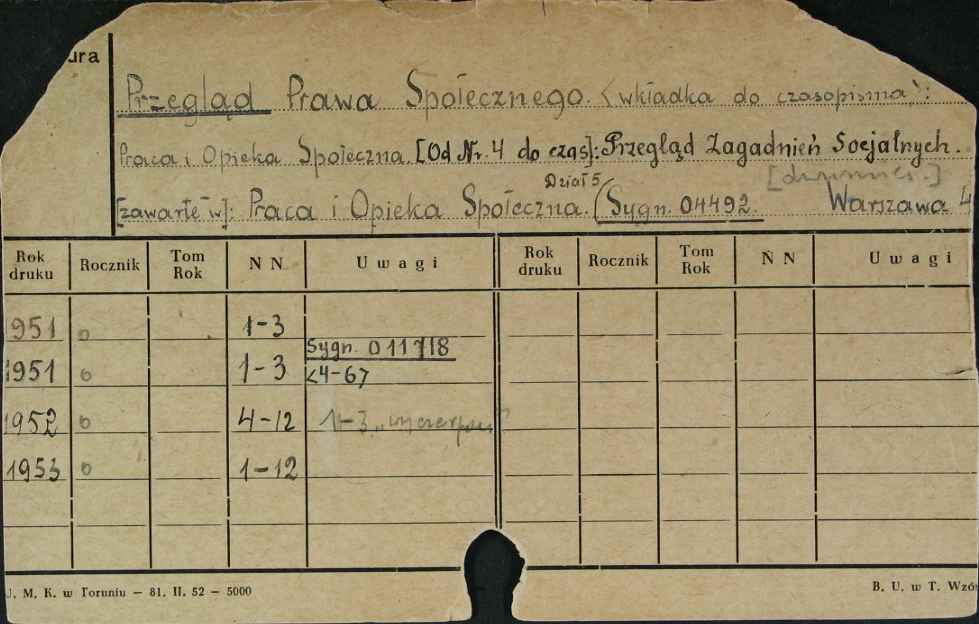 ura
Przegląd Prawa Społecznego. <wkładka do czasopisma>:
Praca i Opieka Społeczna. [Od Nr. 4 do czas]: Przegląd Zagadnień Socjalnych.
Dział 5
[zawarte w]: Praca i Opieka Społeczna. (Sygn. 04492. Warszawa 4
Rok druku Rocznik Tom Rok N N Uwagi Rok druku Rocznik Tom Rok N N Uwagi
951 o 1-3
Sygn. 011718
1951 o 1-3 <4-67
1952 o 4-12 1-3
1953 o 1-12
J. M. K. w Toruniu — 81. II. 52 — 5000 B. U. w T. Wzó